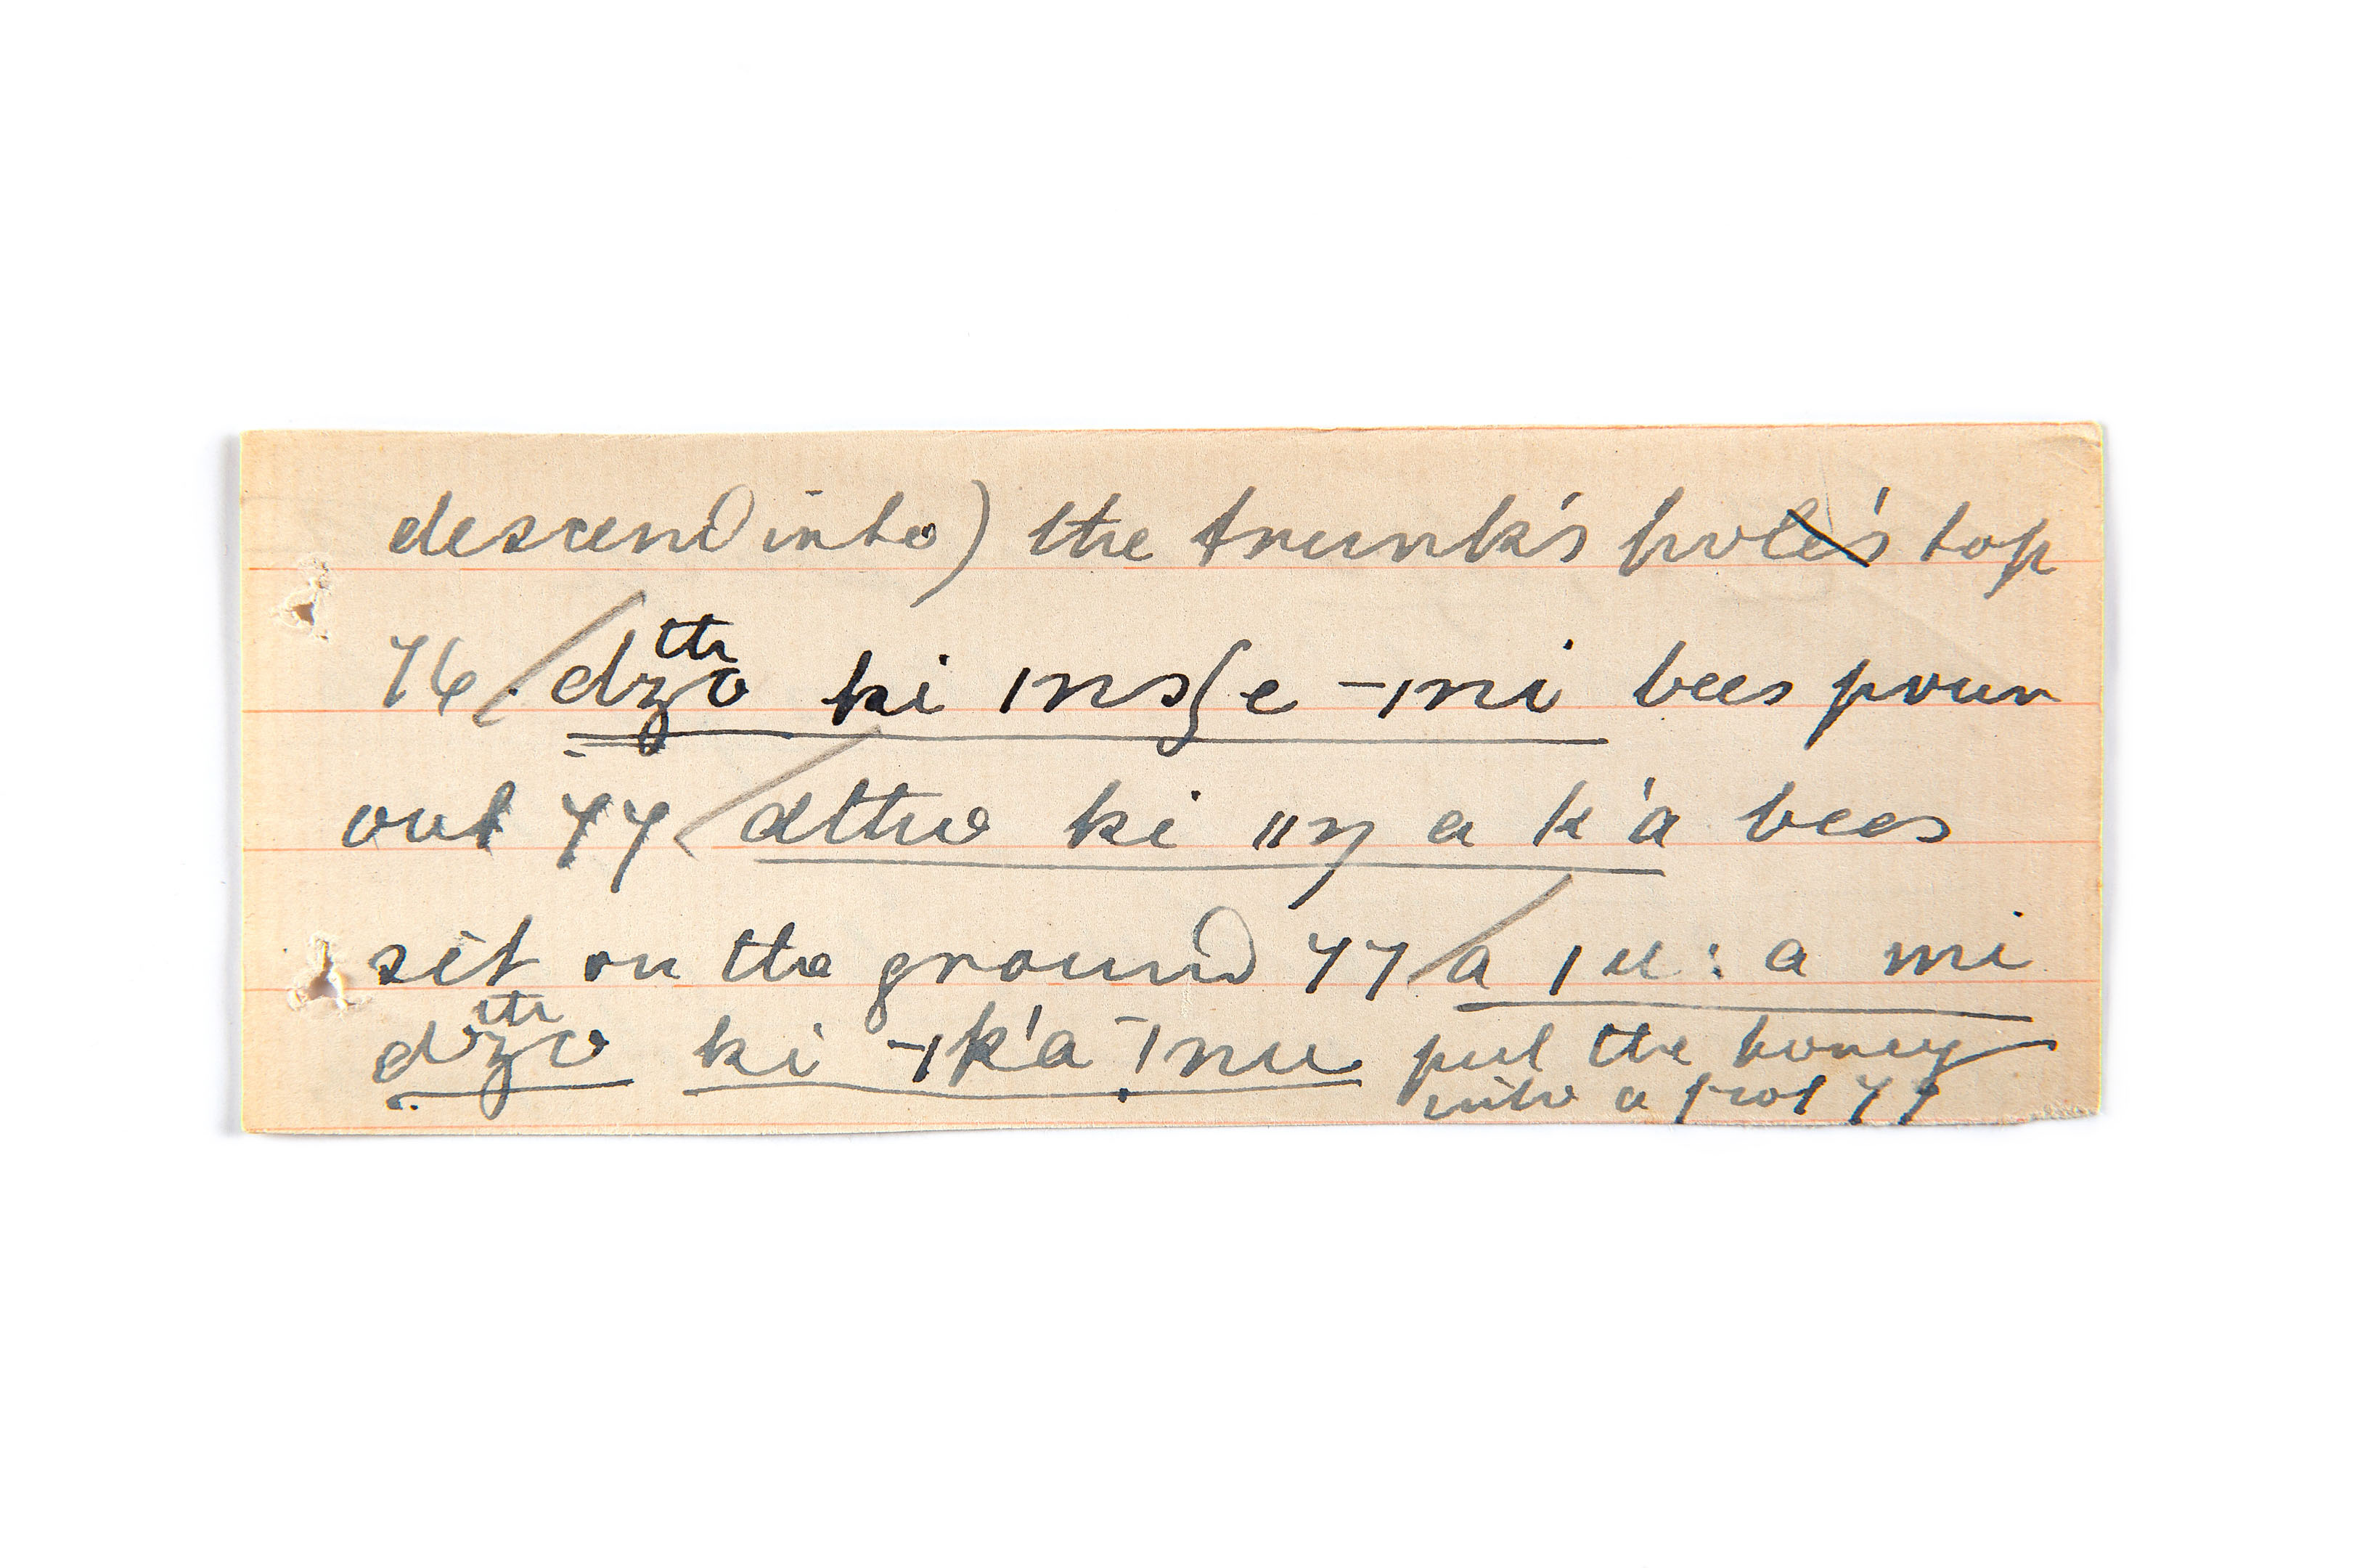 descend into) the trunk's hole's top
76. dzo tth ki ınsʃe -ını bees pour
out 77 dttho ki ıı ŋ a k'a bees
sit on the ground 77 a ı u: a mi
dzo tth ki -ı k'a -ı nu put the honey
into a pot 77